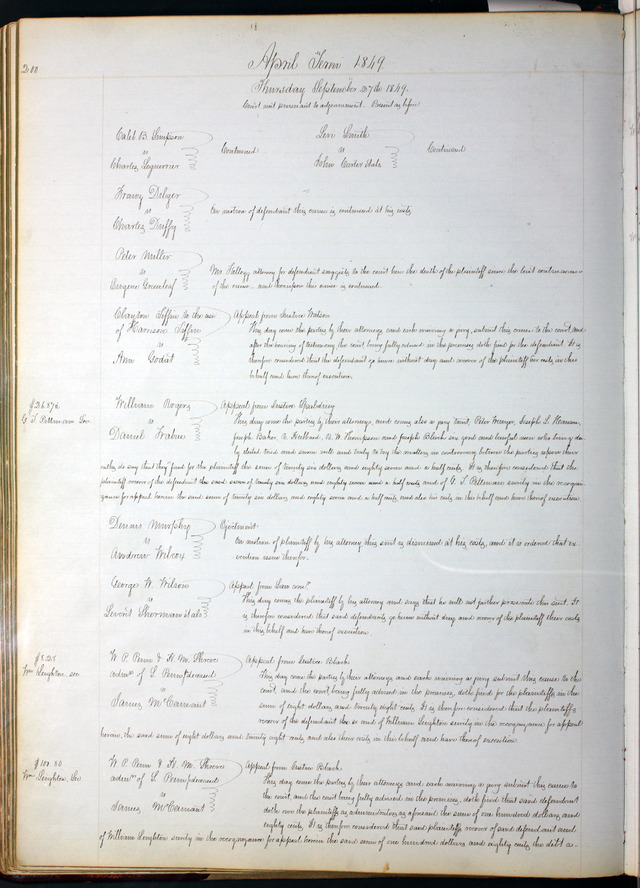 200
April Term 1849
Thursday September 27th 1849.
Court met pursuant to adjournment. Present as before
Caleb B. Simpson
vs
Charles
Continued
Levi Smith
vs
John Carter et als
Continued
vs
Charles Duffy
On motion of defendant this cause is continued at his costs
Peter Miller
vs
Eugene Greenleaf
Mr. Kellogg attorney for defendant suggests to the court here the death of the plaintiff since the last continuance
of the cause and thereupon this cause is continued.
Clayton Tiffin to the use
of Harrison Tiffin
vs
Ann Godist
Appeal from Justice Watson
This day come the parties by their attorneys and each waiving a jury, submit this cause to the court and
after the hearing of testimony the court being fully advised in the premises doth find for the defendant. It is
therefore considered that the defendant go hence without day and recover of the plaintiff his costs in this
behalf and have thereof execution.
$26.87½
G. T. Pitteman Sec
William Rogers
vs
Daniel Frabue
Appeal from Justice
This day come the parties by their attorneys, and comes also a jury to wit, Peter Wenger, Joseph L.
Joseph Baker, A. N. W. Thompson and Joseph Block six good and lawful men who being du-
ly elected tried and sworn well and truly to try the matters in controversy between the parties upon their
oaths do say that they find for the plaintiff the sum of twenty six dollars and eighty seven and a half cents. It is therefore considered that the
plaintiff recover of the defendant the said sum of twenty six dollars and eighty seven and a half cents and of G. T. Pitteman surety in the recogni-
zance for appeal herein the said sum of twenty six dollars and eighty seven and a half cents and also his costs in this behalf and have thereof execution
Dennis Murphy
vs
Andrew Wilcox
Ejectment
On motion of plaintiff by his attorney this suit is dismissed at his costs, and it is ordered that ex-
ecution issue therefor.
George W. Wilson
vs
Levorit Sherman et als
Appeal from Law com.
This day comes the plaintiff by his attorney and says that he will not further prosecute this suit. It
is therefore considered that said defendants go hence without day and recover of the plaintiff their costs
in this behalf and have thereof execution
$8.28
Wm Leighton, sec
W. P. Penn & H. M. Shreve
admrs of S. Penn deceased
vs
James McCarnant
Appeal from Justice Black
This day come the parties by their attorneys and each waiving a jury submit this cause to the
court, and the court being fully advised in the premises, doth find for the plaintiffs in the
sum of eight dollars and twenty eight cents. It is therefore considered that the plaintiffs
recover of the defendant the and of William Leighton surety in the recognizance for appeal
herein, the said sum of eight dollars and twenty eight cents and also their costs in this behalf and have thereof execution.
$100.80
Wm Leighton, Sec
W. P. Penn & H. M. Shreve
admrs of S. Penn deceased
vs
James McCarnant
Appeal from Justice Black
This day come the parties by their attorneys and each waiving a jury submit this cause to
the court, and the court being fully advised in the premises, doth find that said defendant
doth owe the plaintiffs as administrators as aforesaid the sum of one hundred dollars, and
eighty cents. It is therefore considered that said plaintiffs recover of said defendant and
of William Leighton surety in the recognizance for appeal herein the said sum of one hundred dollars and eighty cents, the debt a-